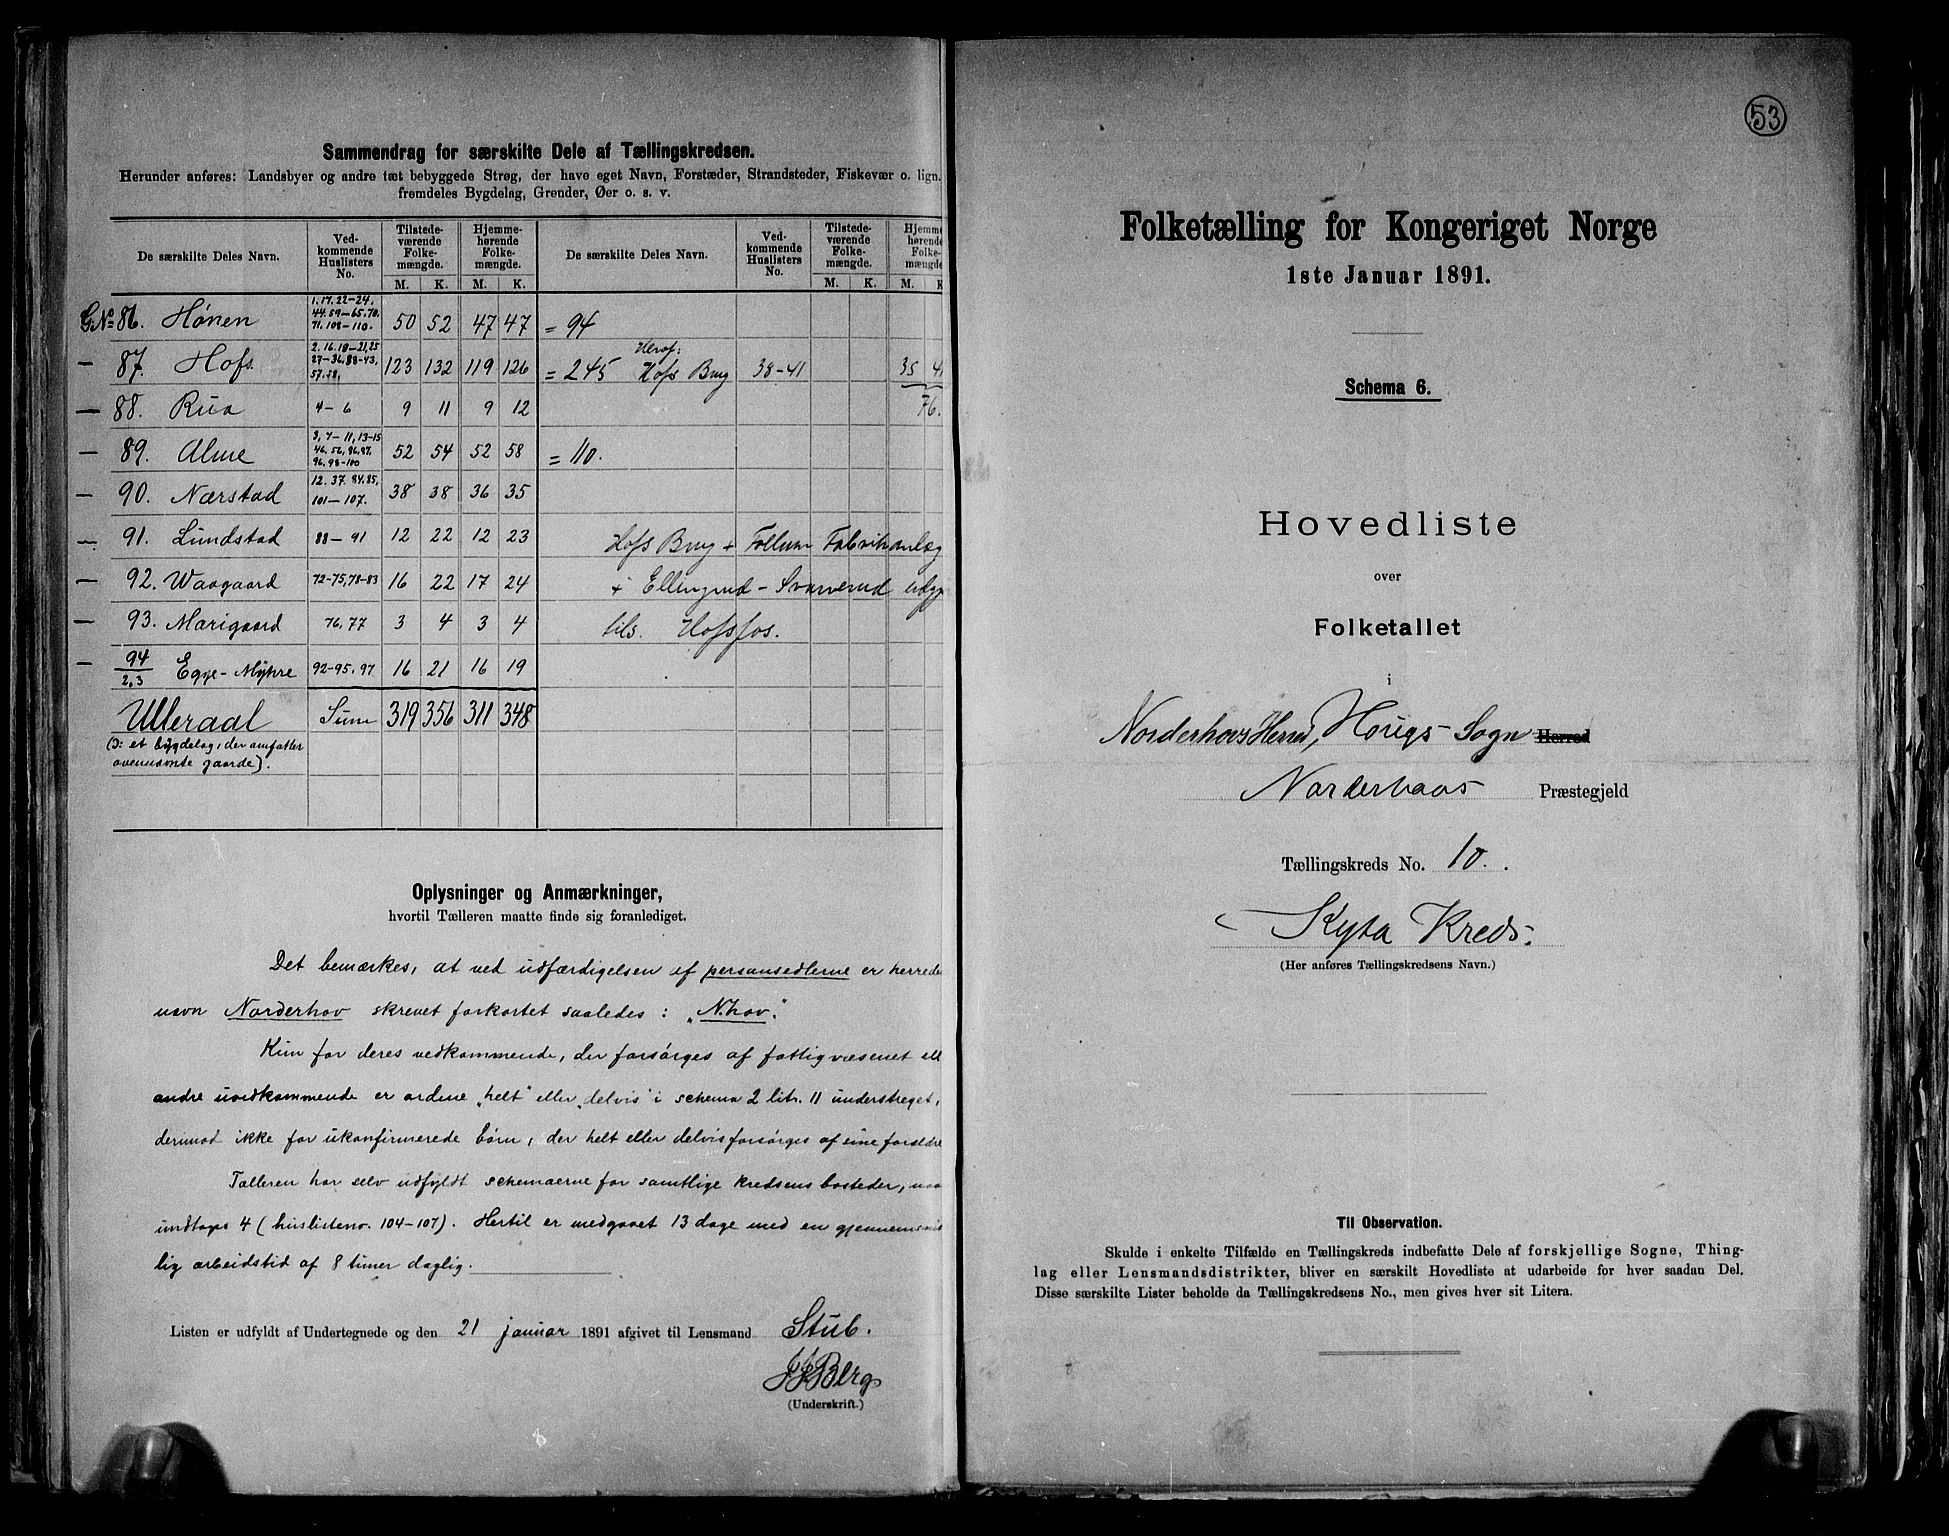 Sammendrag for særskilte Dele af Tællingskredsen.
Herunder anføres: Landsbyer og andre tæt bebyggede Strøg, der have eget Navn, Forstæder, Strandsteder, Fiskevær o. lign.
fremdeles Bygdelag, Grender, Øer o. s. v.
De særskilte Deles Navn. Ved-kommende Huslisters No. Tilstede-værende Folke-mængde. Hjemme-hørende Folke-mængde. De særskilte Deles Navn. Ved-kommende Huslisters No. Tilstede-værende Folke-mængde. Hjemme-hørende Folke-mængde
M. K. M. K. M. K. M. K
G.No 86. Hønen 1.17.22-24, 44.59-65.70. 71.108-110. 50 52 47 47 = 94
— 87. Hofs 2.16.18-21,25 27-36.38-43, 57.58. 123 132 119 126 = 245 Heraf: Hofs Brug 38-41 35
— 88. Rua 4-6 9 11 9 12 76.
— 89. Alme 3,7-11,13-15 52 54 52 58 = 110.
— 90. Nærstad 12.37.84.85, 101-107. 38 38 36 35
— 91. Lundstad 88-91 12 22 12 23 Hofs Brug + Follum Fabrikanlæg
— 92. Waagaard 72-75,78-83 16 22 17 24 + Ellingrud - Svarverud
— 93. Marigaard 76,77 3 4 3 4 tils. Hofsfos.
— 94 2,3 Egge-Myhre 92-95.97 16 21 16 19
Ulleraal Sum 319 356 311 348
(ɔ: et bygdelag, der omfatter
ovennævnte gaarde).
Oplysninger og Anmærkninger,
hvortil Tælleren maatte finde sig foranlediget.
Det bemærkes, at ved udfærdigelsen af personsedlerne er herreds
navn Norderhov skrevet forkortet saaledes: „N.hov."
Kun for deres vedkommende, der forsørges af fattigvæsenet ell
andre uvedkommende er ordene „helt" eller „delvis" i schema 2 litr. 11 understreget,
derimod ikke for ukonfirmerede børn, der helt eller delvis forsørges af sine forældre
Tælleren har selv udfyldt schemaerne for samtlige kredsens bosteder,
undtagn 4 (huslisteno. 104-107). Hertil er medgaaet 13 dage med en gjennemsnit
lig arbeidstid af 8 timer daglig.
Listen er udfyldt af Undertegnede og den 21 januar 1891 afgivet til Lensmand Stub.
Berg
(Underskrift.)
8
53
Folketælling for Kongeriget Norge
1ste Januar 1891.
Schema 6.
Hovedliste
over
Folketallet
i
Norderhovs Herred, Hougs Sogn Herred
Norderhovs Præstegjeld
Tællingskreds No. 10.
Kyta Kreds.
(Her anføres Tællingskredsens Navn.)
Til Observation.
Skulde i enkelte Tilfælde en Tællingskreds indbefatte Dele af forskjellige Sogne, Thing-
lag eller Lensmandsdistrikter, bliver en særskilt Hovedliste at udarbeide for hver saadan Del.
Disse særskilte Lister beholde da Tællingskredsens No., men gives hver sit Litera.